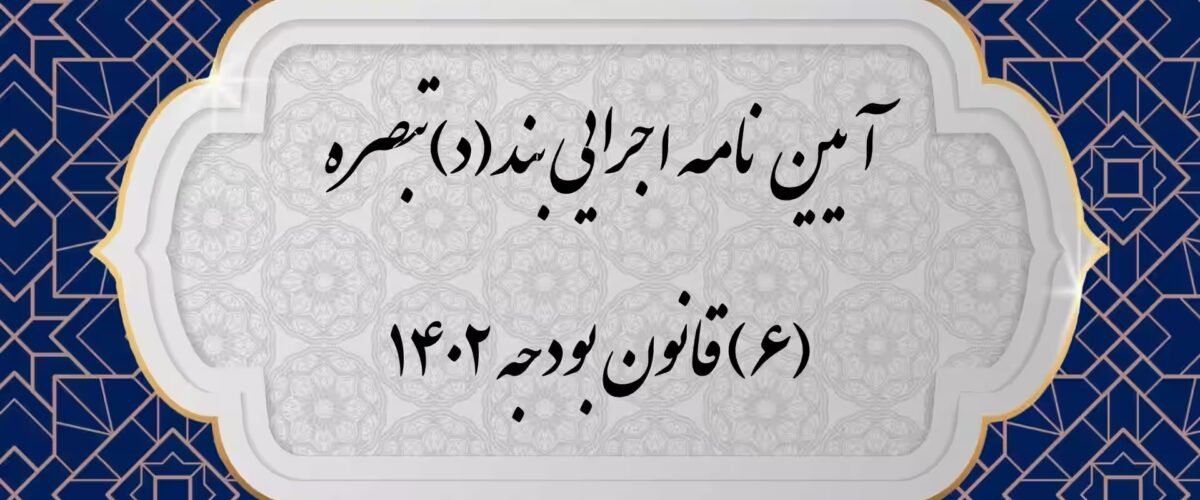 آیین نامه اجرایی بند (د) تبصره
(۶) قانون بودجه ۱۴۰۲